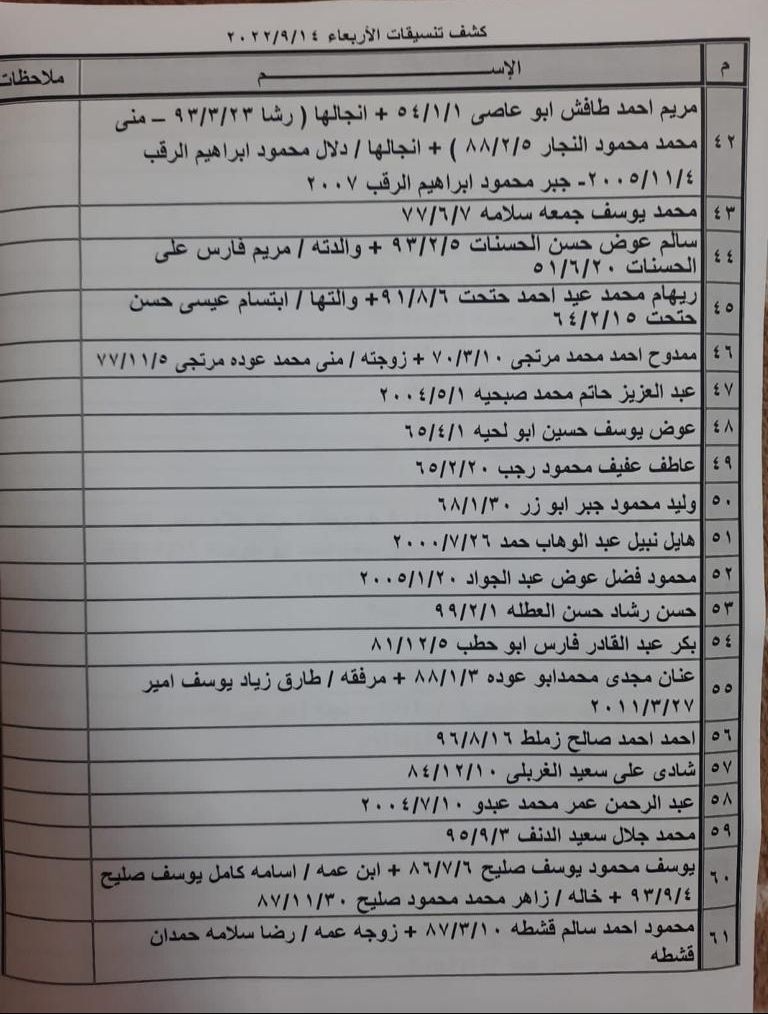 كشف تنسيقات الأربعاء ٢٠٢٢/٩/١٤
م الإســــــــــــم ملاحظات
٤٢ مريم احمد طافش ابو عاصى ٥٤/١/١ + انجالها ( رشا ٩٣/٣/٢٣ – منى
محمد محمود النجار ٨٨/٢/٥ ) + انجالها / دلال محمود ابراهيم الرقب
٢٠٠٥/١١/٤- جبر محمود ابراهيم الرقب ٢٠٠٧
٤٣ محمد يوسف جمعه سلامه ٧٧/٦/٧
٤٤ سالم عوض حسن الحسنات ٩٣/٢/٥ + والدته / مريم فارس على
الحسنات ٥١/٦/٢٠
٤٥ ريهام محمد عيد احمد حتحت ٩١/٨/٦+ والتها / ابتسام عيسى حسن
حتحت ٦٤/٢/١٥
٤٦ ممدوح احمد محمد مرتجى ٧٠/٣/١٠ + زوجته / منى محمد عوده مرتجى ٧٧/١١/٥
٤٧ عبد العزيز حاتم محمد صبحيه ٢٠٠٤/٥/١
٤٨ عوض يوسف حسين ابو لحيه ٦٥/٤/١
٤٩ عاطف عفيف محمود رجب ٦٥/٢/٢٠
٥٠ وليد محمود جبر ابو زر ٦٨/١/٣٠
٥١ هايل نبيل عبد الوهاب حمد ٢٠٠٠/٧/٢٦
٥٢ محمود فضل عوض عبد الجواد ٢٠٠٥/١/٢٠
٥٣ حسن رشاد حسن العطله ٩٩/٢/١
٥٤ بكر عبد القادر فارس ابو حطب ٨١/١٢/٥
٥٥ عنان مجدى محمدابو عوده ٨٨/١/٣ + مرفقه / طارق زياد يوسف امير
٢٠١١/٣/٢٧
٥٦ احمد احمد صالح زملط ٩٦/٨/١٦
٥٧ شادى على سعيد الغربلى ٨٤/١٢/١٠
٥٨ عبد الرحمن عمر محمد عبدو ٢٠٠٤/٧/١٠
٥٩ محمد جلال سعيد الدنف ٩٥/٩/٣
٦٠ يوسف محمود يوسف صليح ٨٦/٧/٦ + ابن عمه / اسامه كامل يوسف صليح
٩٣/٩/٤ + خاله / زاهر محمد محمود صليح ٨٧/١١/٣٠
٦١ محمود احمد سالم قشطه ٨٧/٣/١٠ + زوجه عمه / رضا سلامه حمدان
قشطه